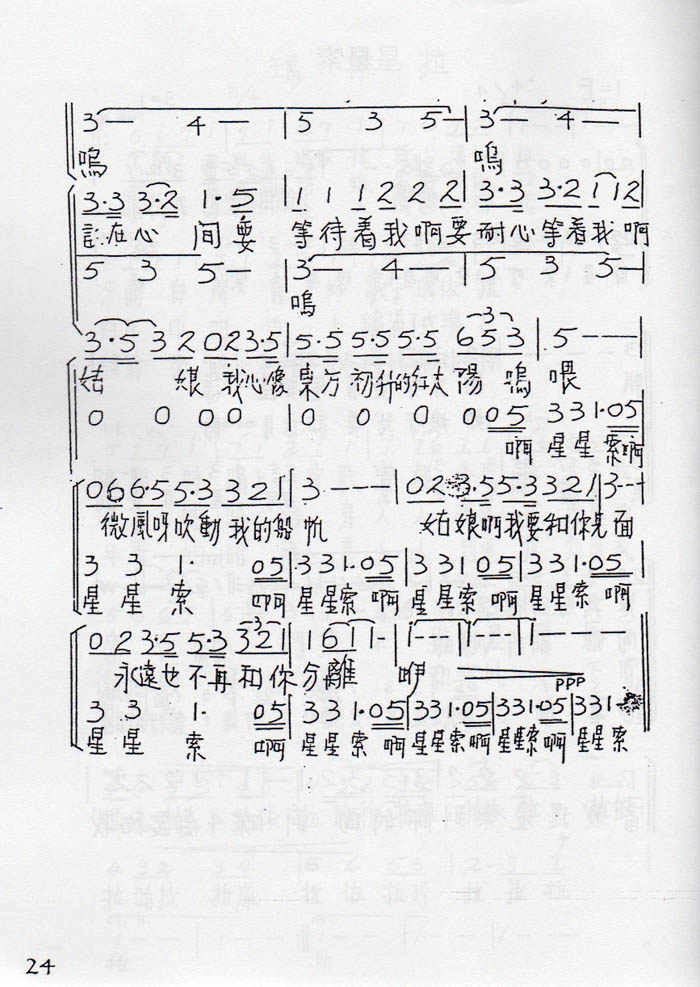 3 - 4 - | 5 3 5 - | 3 - 4 -
嗚 嗚
3·3 3·2 1·5 | 1 1 1 2 2 2 | 3·3 3·2 1 1 2
記在心間要等待着我啊要耐心等着我啊
5 3 5 - | 3 - 4 - | 5 3 5 -
嗚
3·5 3 2 0 2 3·5 | 5·5 5·5 5·5 6 5 3 | 5 - - -
姑娘我心像東方初升的紅太陽嗚喂
0 0 0 0 | 0 0 0 0 0 5 3 3 1·0 5
啊星星索啊
0 6 6·5 5·3 3 2 1 | 3 - - - | 0 2 3·5 5·3 3 2 1 | 3 - -
微風呀吹動我的船帆 姑娘啊我要和你見面
3 3 1· 0 5 | 3 3 1·0 5 | 3 3 1 0 5 | 3 3 1·0 5
星星索啊星星索啊星星索啊星星索啊
0 2 3·5 5·3 3 2 1 | 1 6 1 1 - | 1 - - - | 1 - - - | 1 - - -
永遠也不再和你分離咿
PPP
3 3 1· 0 5 | 3 3 1·0 5 | 3 3 1·0 5 | 3 3 1·0 5 | 3 3 1
星星索啊星星索啊星星索啊星星索啊星星索
24